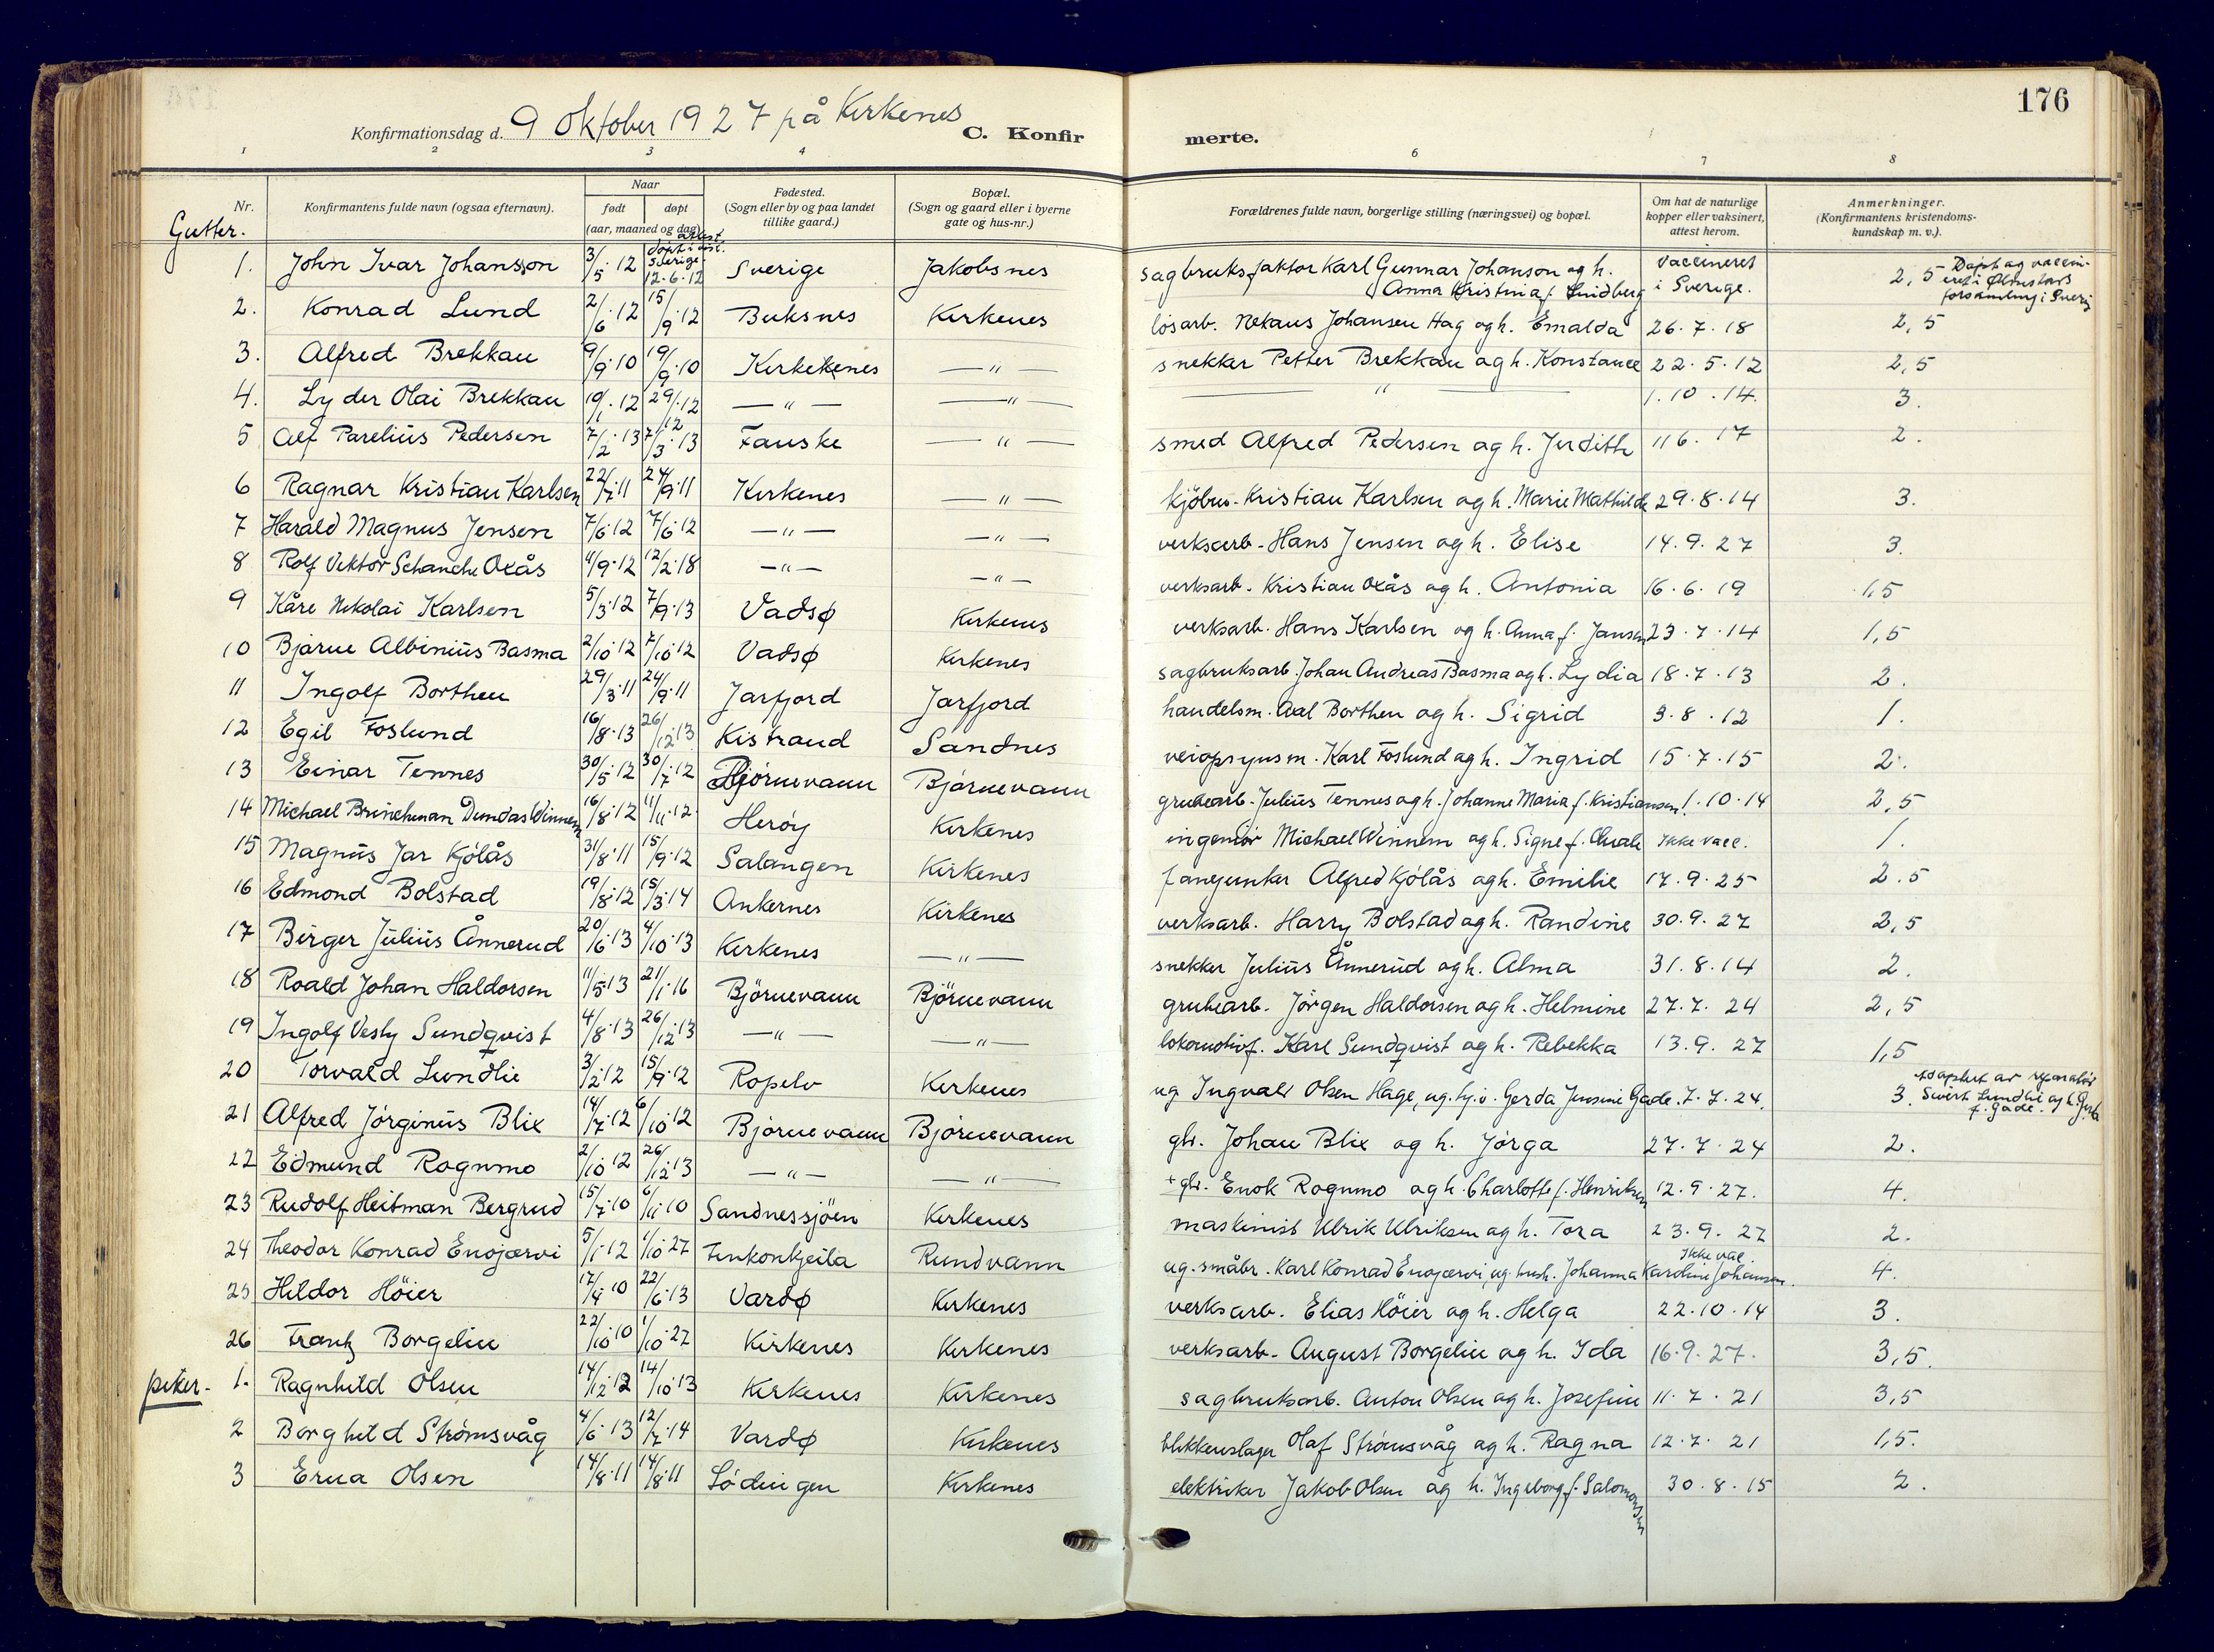 176
Konfirmationsdag d. 9 Oktober 1927 på Kirkenes
C. Konfirmerte.
1 2 3 4 6 7 8
Nr. Konfirmantens fulde navn (ogsaa efternavn). Naar født døpt (aar, maaned og dag) Fødested. (Sogn eller by og paa landet tillike gaard.) Bopæl. (Sogn og gaard eller i byerne gate og hus-nr.) Forældrenes fulde navn, borgerlige stilling (næringsvei) og bopæl. Om hat de naturlige kopper eller vaksinert, attest herom. Anmerkninger. (Konfirmantens kristendoms-kundskap m. v.).
Gutter.
1. John Ivar Johansson 3/5.12 døpt i Sverige 12.6.12 Sverige Jakobsnes sagbruksfaktor Karl Gunnar Johanson og h. Anna Kristina f. Lindberg vaccineret i Sverige. 2,5 Døpt og vaccineret i forsamling i Sverig
2. Konrad Lund 2/6.12 15/9.12 Buksnes Kirkenes løsarb. Johansen Hag og h. Emalda 26.7.18 2,5
3. Alfred Brekkan 9/9.10 19/9.10 Kirkekenes —"— snekker Petter Brekkan og h. Konstance 22.5.12 2,5
4. Lyder Olai Brekkan 10/1.12 29/12.12 —"— —"— —"— 1.10.14. 3.
5 Alf Parelius Pedersen 7/2.13 7/3.13 Fauske —"— smed Alfred Pedersen og h. Jerditte 116.17 2.
6 Ragnar Kristian Karlsen 22/7.11 24/9.11 Kirkenes —"— kjöbm. Kristian Karlsen og h. Marie Mathilde 29.8.14 3.
7 Harald Magnus Jensen 7/6.12 7/6.12 —"— —"— verksarb. Hans Jensen og h. Elise 14.9.27 3.
8 Rolf Viktor Schanche Oxås 4/9.12 12/2.18 —"— —"— verksarb. Kristian Oxås og h. Antonia 16.6.19 1,5
9 Kåre Nikolai Karlsen 5/3.12 7/9.13 Vadsø Kirkenes verksarb. Hans Karlsen og h. Anna f. Jansen 23.7.14 1,5
10 Bjarne Albinius Basma 2/10.12 7/10.12 Vadsø Kirkenes sagbruksarb. Johan Andreas Basma og h. Lydia 18.7.13 2.
11 Ingolf Borthen 29/3.11 24/9.11 Jarfjord Jarfjord handelsm. Axel Borthen og h. Sigrid 3.8.12 1.
12 Egil Foslund 16/8.13 26/12.13 Kistrand Sandnes veiopsynsm. Karl Foslund og h. Ingrid 15.7.15 2.
13 Einar Tennes 30/5.12 30/7.12 Bjørnevann Bjørnevann grubearb. Julius Tennes og h. Johanne Maria f. Kristiansen 1.10.14 2,5
14 Michael Brinchman Dundas Winnem 16/8.12 11/11.12. Herøy Kirkenes ingeniør Michael Winnem og h. Signe f. ikke vacc. 1.
15 Magnus Jar Kjölås 31/8.11 15/9.12 Salangen Kirkenes fanejunker Alfred Kjölås og h. Emilie 17.9.25 2.5
16 Edmond Bolstad 19/8.12 15/3.14 Ankernes Kirkenes verksarb. Harry Bolstad og h. Randine 30.9.27 2,5
17 Birger Julius Ånnerud 20/6.13 4/10.13 Kirkenes —"— snekker Julius Ånnerud og h. Alma 31.8.14 2.
18 Roald Johan Haldorsen 11/5.13 21/1.16 Björnevann Björnevann grubearb. Jörgen Haldorsen og h. Helmine 27.7.24 2,5
19 Ingolf Vesly Sundqvist 4/8.13 26/12.13 —"— —"— lokomotivf. Karl Sundqvist og h. Rebekka 13.9.27 1,5
20 Torvald Lundlie 3/2.12 15/9.12 Ropelv Kirkenes ug. Ingvald Olsen Hage, ug. tj. v. Gerda Jensine Gade. 7.7.24. 3. Adoptert av reparatör Sivert Lundlie og h. Gerda f. Gade.
21 Alfred Jörginus Blix 14/7.12 6/10.12 Bjørnevann Bjørnevann gbr. Johan Blix og h. Jörga 27.7.24 2.
22 Edmund Rognmo 2/10.12 26/12.13 —"— —"— + gbr. Enok Rognmo og h. Charlotte f. Henriksen 12.9.27. 4.
23 Rudolf Heitman Bergrud 15/7.10 6/11.10 Sandnessjöen Kirkenes maskinist Ulrik Ulriksen og h. Tora 23.9.27 2.
24 Theodor Konrad Enojærvi 5/1.12 1/10.27 Rundvann ug. småbr. Karl Konrad Enojærvi, ug. hush. Johanna Karoline Johansen. Ikke vac. 4.
25 Hildor Höier 17/4.10 22/6.13 Vardø Kirkenes verksarb. Elias Höier og h. Helga 22.10.14 3.
26 Frantz Borgelin 22/10.10 1/10.27 Kirkenes Kirkenes verksarb. August Borgelin og h. Ida 16.9.27. 3,5.
piker.
1. Ragnhild Olsen 14/12.12 14/10.13 Kirkenes Kirkenes sagbruksarb. Anton Olsen og h. Josefine 11.7.21 3,5
2 Borghild Strömsvåg 4/6.13 12/7.14 Vardø Kirkenes blikkenslager Olaf Strömsvåg og h. Ragna 12.7.21 1,5.
3 Erna Olsen 14/8.11 14/8.11 Lödingen Kirkenes elektriker Jakob Olsen og h. Ingeborg f. Salomonsen 30.8.15 2.